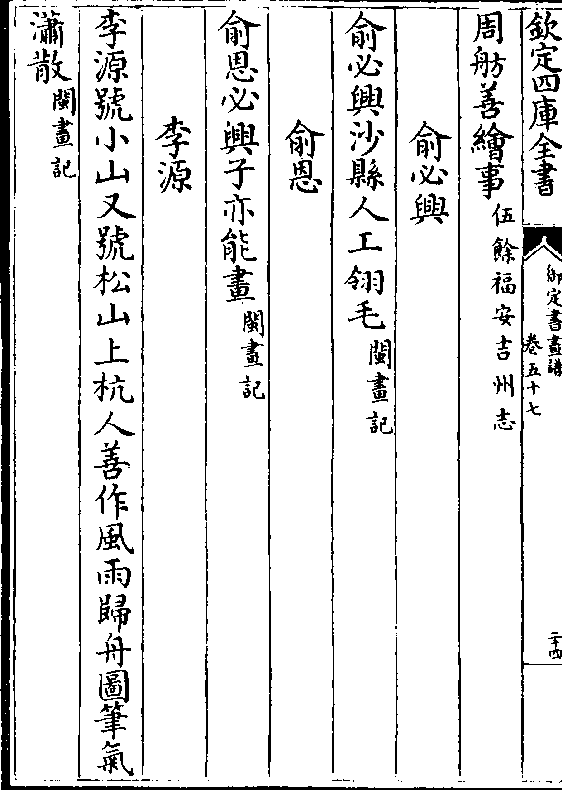 欽定四庫全書
御定書畫譜
卷五十七
二十四
周舫善繪事伍餘福安吉州志
俞必興
俞必興沙縣人工翎毛閩畫記
俞恩
俞恩必興子亦能畫閩畫記
李源
李源號小山又號松山上杭人善作風雨歸舟圖筆氣
瀟散閩畫記